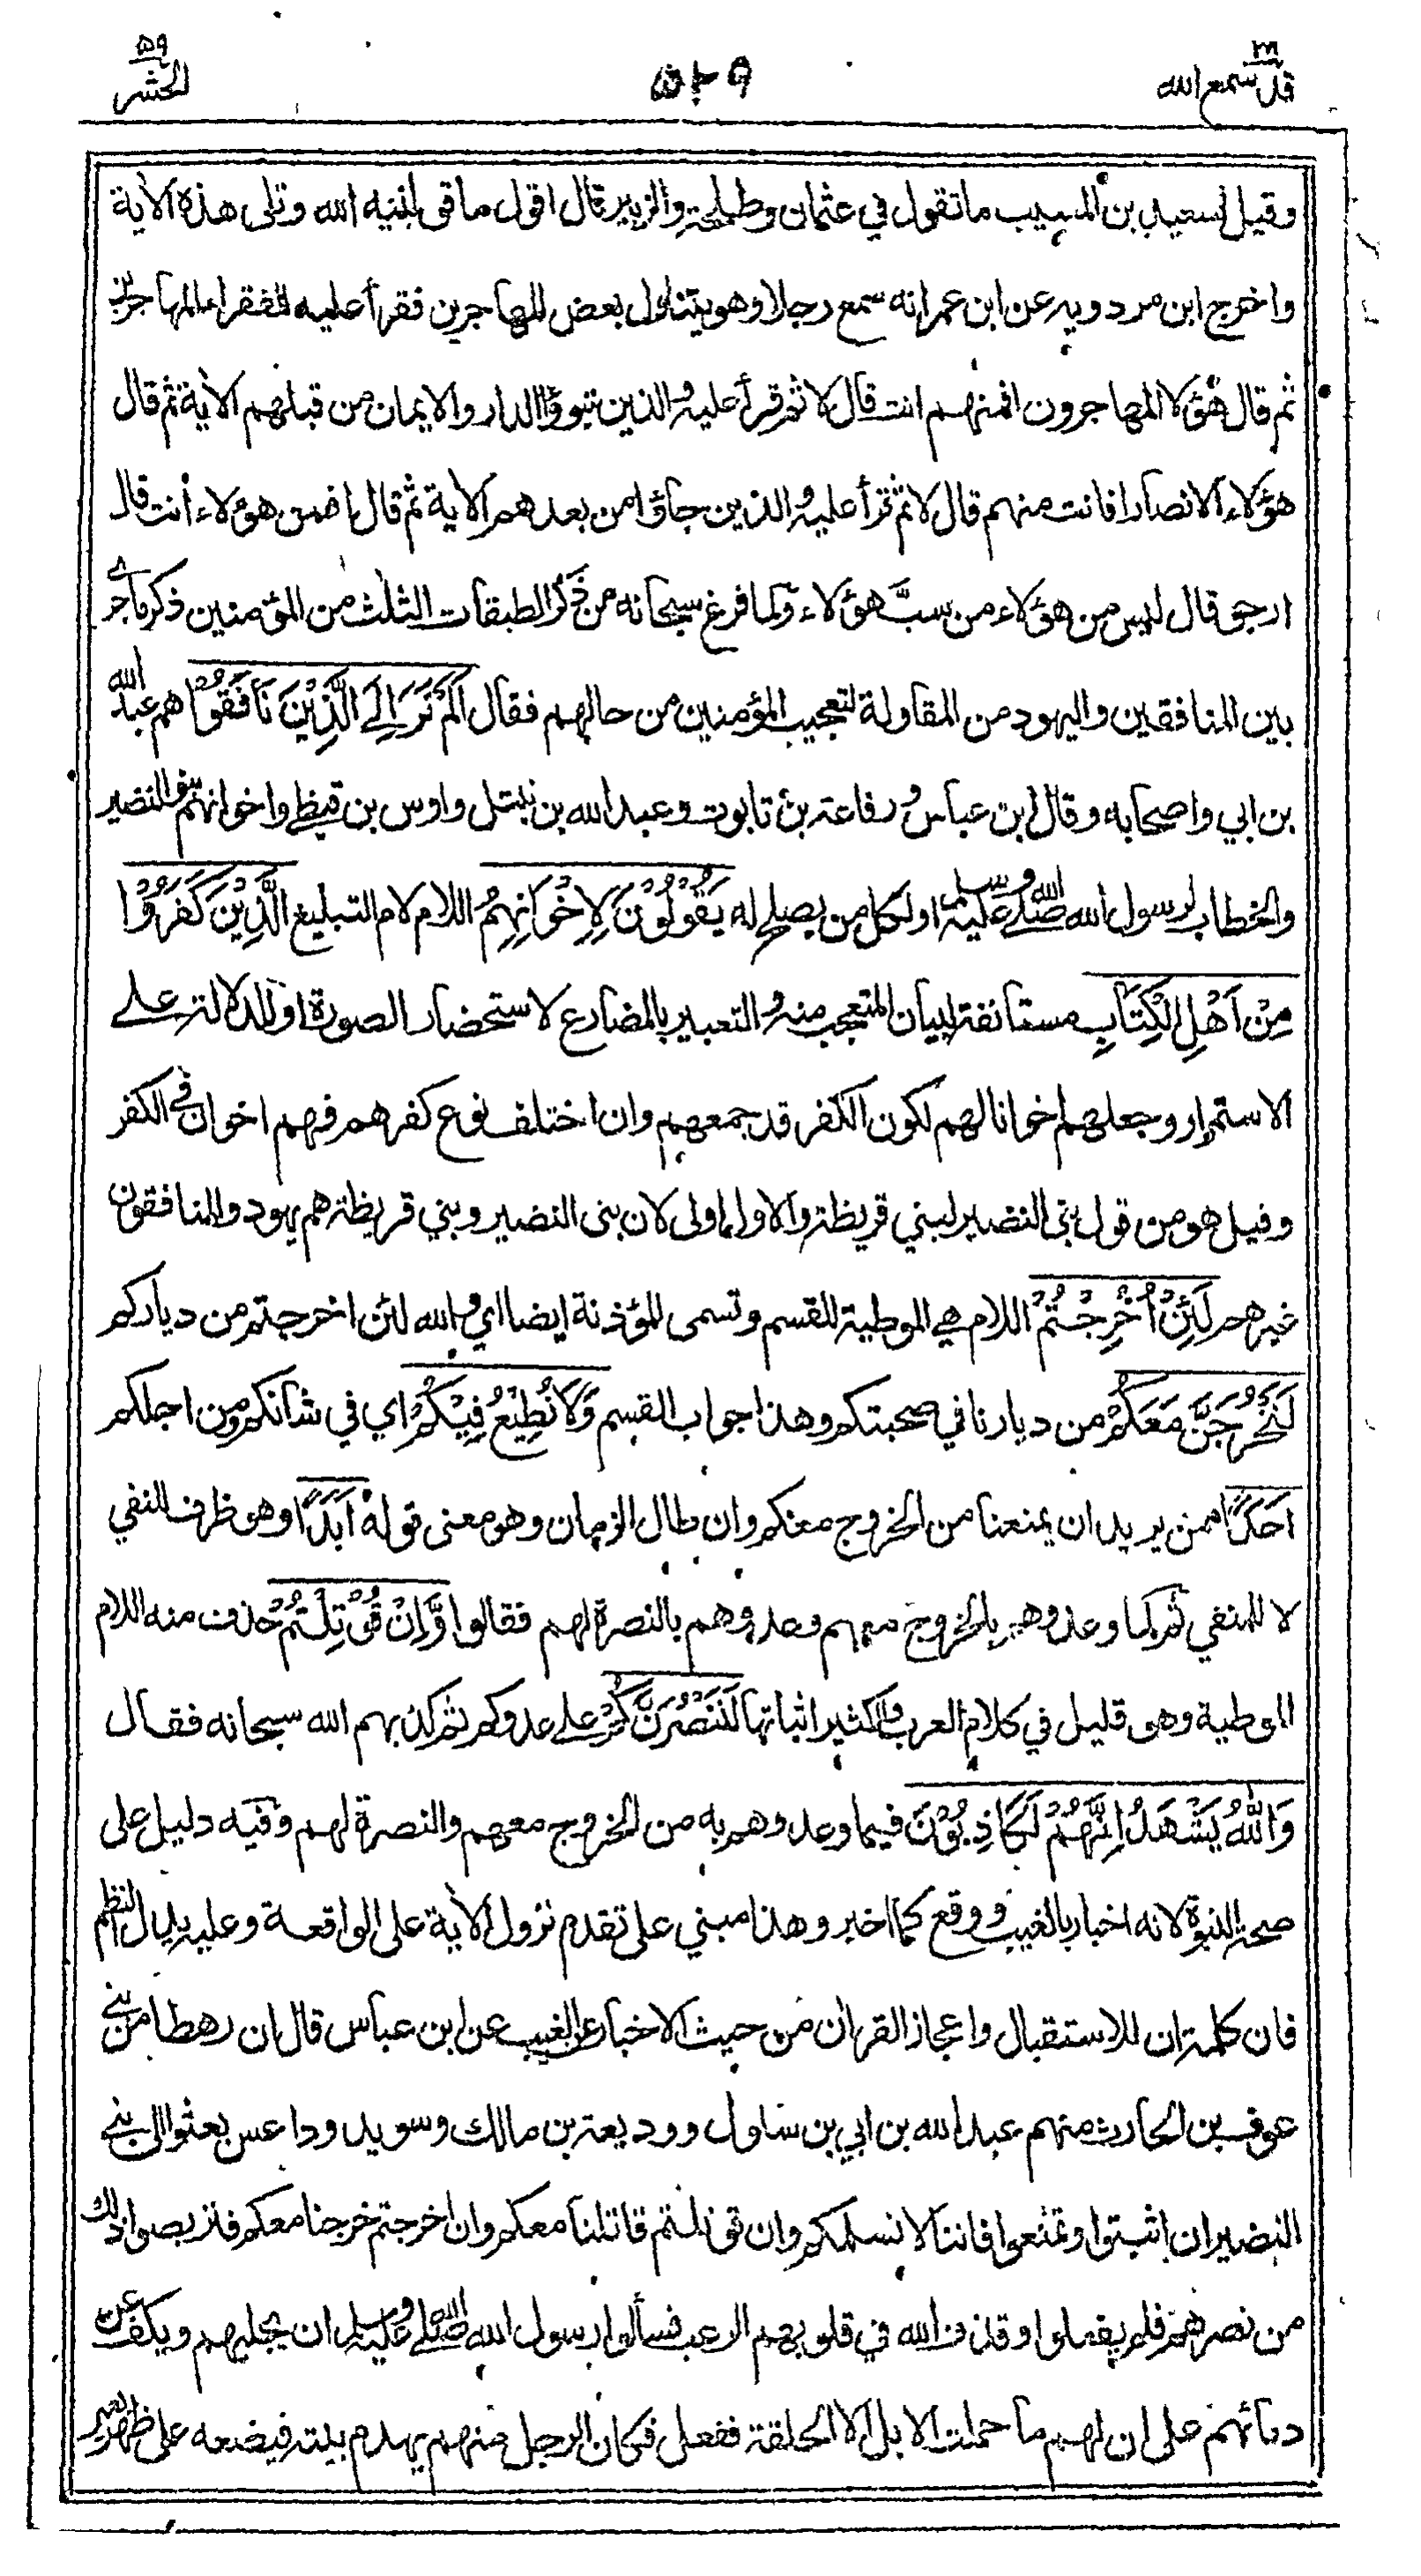 قد سمع الله ٢٨
٥٢٩
الحشر ٥٩
وقيل لسعيد بن المسيب ما تقول في عثمان وطلحة والزبير قال اقول ما قولنيه الله وتلى هذه الآية
واخرج ابن مردويه عن ابن عمر انه سمع رجلا وهو يتناول بعض المهاجرين فقرأ عليه للفقراء المهاجرين
ثم قال هؤلاء المهاجرون افمنهم انت قال لا ثم قرأ عليه والذين تبوؤا الدار والايمان من قبلهم الآية ثم قال
هؤلاء الانصار افانت منهم قال لا ثم قرأ عليه والذين جاؤا من بعدهم الآية ثم قال افمن هؤلاء أنت قال
ارجو قال ليس من هؤلاء من سبَّ هؤلاء ولما فرغ سبحانه من ذكر الطبقات الثلث من المؤمنين ذكر ما جرى
بين المنافقين واليهود من المقاولة لتعجيب المؤمنين من حالهم فقال اَلَمْ تَرَ اِلَى الَّذِيْنَ نَافَقُوْا هم عبد الله
بن ابي واصحابه وقال ابن عباس ورفاعة بن تابوت وعبد الله بن نبتل واوس بن قيظي واخوانهم بنو النضير
والخطاب لرسول الله صلى الله عليه وسلم او لكل من يصلح له يَقُوْلُوْنَ لِاِخْوَانِهِمُ اللام لام التبليغ الَّذِيْنَ كَفَرُوْا
مِنْ اَهْلِ الْكِتَابِ مستأنفة لبيان المتعجب منه والتعبير بالمضارع لاستحضار الصورة او للدلالة على
الاستمرار وجعلهم اخوانا لهم لكون الكفر قد جمعهم وان اختلف نوع كفرهم فهم اخوان في الكفر
وقيل هو من قول بني النضير لبني قريظة والاول اولى لان بنى النضير وبني قريظة هم يهود والمنافقون
غيرهم لَئِنْ اُخْرِجْتُمْ اللام هي الموطية للقسم وتسمى المؤذنة ايضا اي والله لئن اخرجتم من دياركم
لَنَخْرُجَنَّ مَعَكُمْ من ديارنا في صحبتكم وهذا جواب القسم وَلَا نُطِيْعُ فِيْكُمْ اي في شأنكم ومن اجلكم
اَحَدًا ممن يريد ان يمنعنا من الخروج معكم وان طال الزمان وهو معنى قوله اَبَدًا وهو ظرف للنفي
لا للمنفي ثم لما وعدوهم بالخروج معهم وعدوهم بالنصرة لهم فقالوا وَّاِنْ قُوْتِلْتُمْ حذف منه اللام
الموطية وهو قليل في كلام العرب والكثير اثباتها لَنَنْصُرَنَّكُمْ على عدوكم ثم كذبهم الله سبحانه فقال
وَاللّٰهُ يَشْهَدُ اِنَّهُمْ لَكَاذِبُوْنَ فيما وعدوهم به من الخروج معهم والنصرة لهم وفيه دليل على
صحة النبوة لانه اخبار بالغيب ووقع كما اخبر وهذا مبني على تقدم نزول الآية على الواقعة وعليه يدل النظم
فان كلمة ان للاستقبال واعجاز القران من حيث الاخبار عن الغيب عن ابن عباس قال ان رهطا من بني
عوف بن الحارث منهم عبد الله بن ابي بن سلول ووديعة بن مالك وسويد وداعس بعثوا الى بني
النضير ان اثبتوا وتمنعوا فاننا لا نسلمكم وان قوتلتم قاتلنا معكم وان اخرجتم خرجنا معكم فتربصوا ذلك
من نصرهم فلم يفعلوا وقذف الله في قلوبهم الرعب فسألوا رسول الله صلى الله عليه وسلم ان يجليهم ويكف عن
دمائهم على ان لهم ما حملت الابل الا الحلقة ففعل فكان الرجل منهم يهدم بيته فيضعه على ظهر بعير